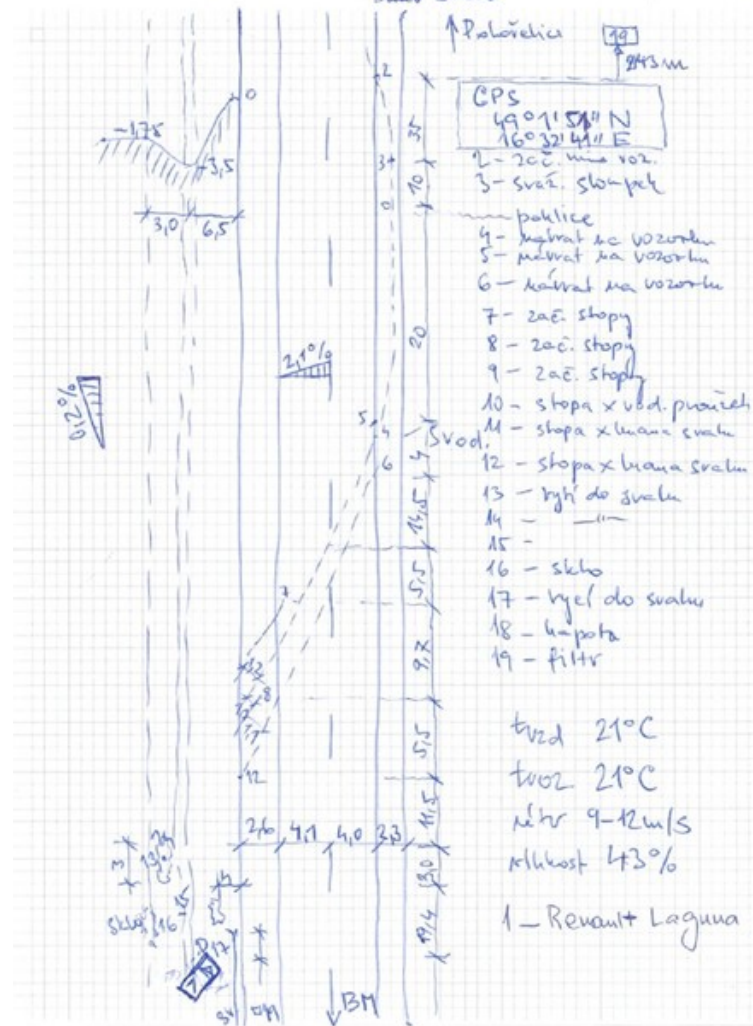 ↑ Pohořelice
19
243 m
GPS
49°1'51" N
16°32'41" E
2 - zač. mimo voz.
3 - svaz. sloupek
poklice
4 - návrat na vozovku
5 - návrat na vozovku
6 - návrat na vozovku
7 - zač. stopy
8 - zač. stopy
9 - zač. stopy
10 - stopa x vod. proužek
11 - stopa x hrana svahu
12 - stopa x hrana svahu
13 - rytí do svahu
14 - —"—
15 -
16 - sklo
17 - rytí do svahu
18 - kapota
19 - filtr
tvzd 21°C
tvoz 21°C
vítr 9-12 m/s
vlhkost 43%
1 - Renault Laguna
0
-1,75
-3,5
3,0
6,5
0,2%
2,1%
2
3
35
10
20
5
4
6
Svod.
4
14,5
5,5
9,7
5,5
11,5
3,0
19,4
7
8
12
2,6
4,1
4,0
2,3
3
sklo
16
17
BM